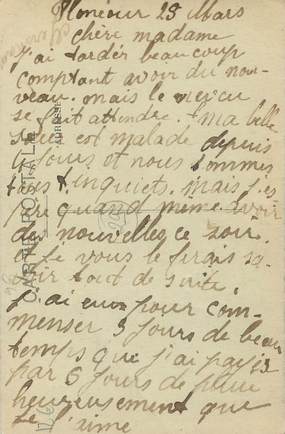 Honéour 25 Mars
chère madame
j'ai tardér beaucoup
comptant avoir du nou-
veau. mais le
se fait attendre. ma belle
sœur est malade depuis
jours et nous sommes
tous inquiets. mais j'es
père quand même avoir
des nouvelles ce soir.
je vous le ferais sa-
voir tout de suite.
j'ai eu pour com-
menser 3 jours de beau
temps que j'ai payé
par 6 jours de pluie
heureusement que
je l'aime
CARTE POSTALE
ADRESSE